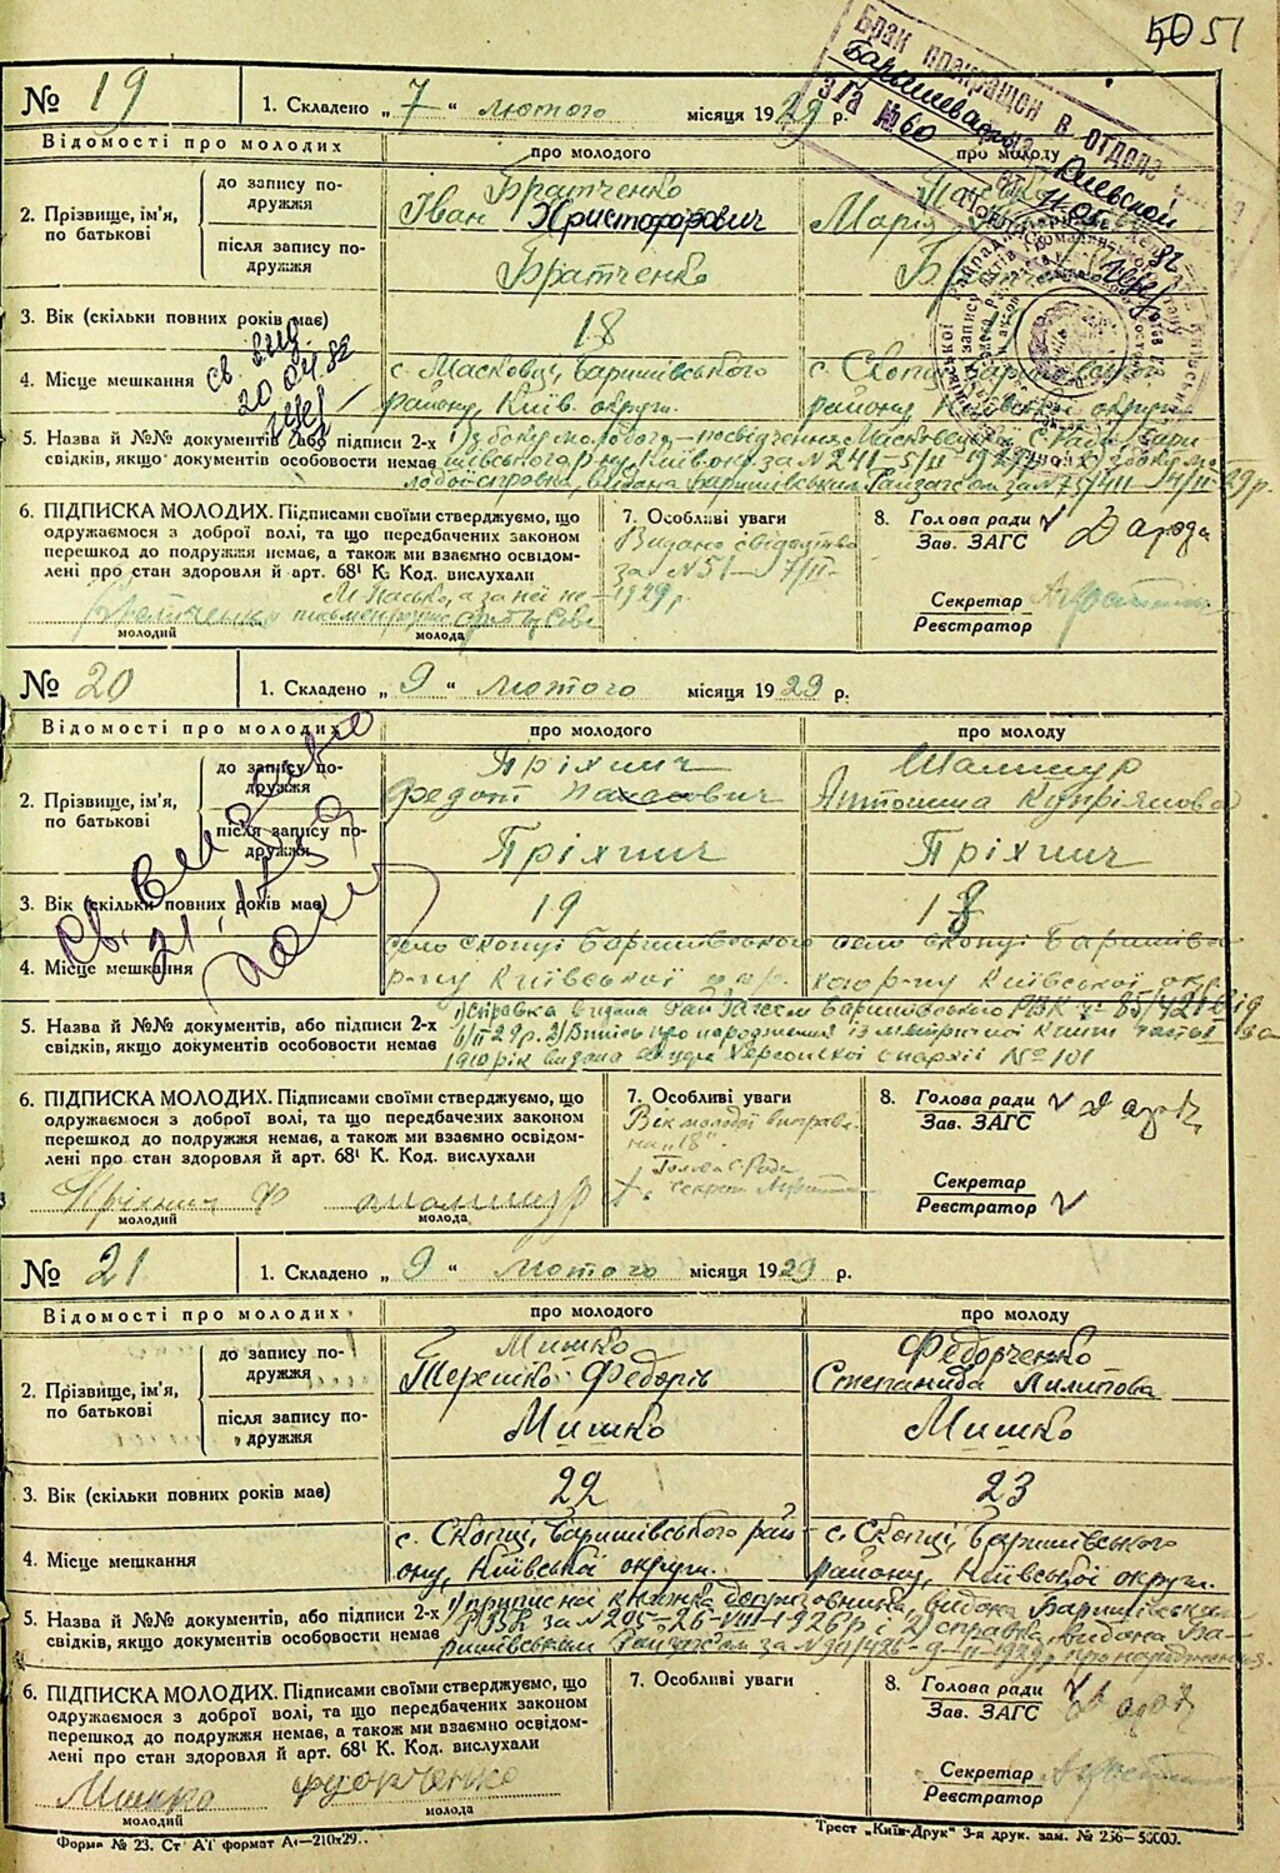 50 51
Брак прекращен в отделе
Барышевского Киевской
ЗАГ №60
№ 19
1. Складено „7“ лютого місяця 1929 р.
Відомості про молодих
про молодого
про молоду
2. Прізвище, ім'я, по батькові
до запису подружжя
Братченко
Іван Христофорович
Марія
після запису подружжя
Братченко
3. Вік (скільки повних років має)
18
св. вид.
20 04 82
4. Місце мешкання
с. Масковці, Баришівського
району, Київ. округи.
с. Скопці Баришівського
району, Київської округи
5. Назва й №№ документів, або підписи 2-х
свідків, якщо документів особовости немає
1) з боку молодого — посвідчення Масковецької С. Ради Бари-
шівського р-ну Київ. окр. за №241—5/II—1929 р. 2) з боку мо-
лодої справка, видана Баришівським Райзагсом за №75/411—4/II—29 р.
6. ПІДПИСКА МОЛОДИХ. Підписами своїми стверджуємо, що
одружаємося з доброї волі, та що передбачених законом
перешкод до подружжя немає, а також ми взаємно освідом-
лені про стан здоровля й арт. 68¹ К. Код. вислухали
М. Пасько, а за неї не-
Братченко
молодий
молода
7. Особливі уваги
Видано свідоцтво
за №51—7/II—
1929 р.
8. Голова ради
Зав. ЗАГС
Секретар
Реєстратор
№ 20
1. Складено „9“ лютого місяця 1929 р.
Відомості про молодих
про молодого
про молоду
2. Прізвище, ім'я, по батькові
до запису подружжя
Пріхнич
Федот
Шалимур
Антонина Купріянова
після запису подружжя
Пріхнич
Пріхнич
3. Вік (скільки повних років має)
19
18
Св. видано
4. Місце мешкання
село Скопці Баришівського
р-ну Київської окр.
село Скопці Баришівсь
кого р-ну Київської окр.
5. Назва й №№ документів, або підписи 2-х
свідків, якщо документів особовости немає
1) Справка видана РайЗагсом Баришівського РВК № 85/421 від
6/II 29 р. 2) Витись про народження із метричної книги часть I за
1910 рік видана Херсонської єпархії №101
6. ПІДПИСКА МОЛОДИХ. Підписами своїми стверджуємо, що
одружаємося з доброї волі, та що передбачених законом
перешкод до подружжя немає, а також ми взаємно освідом-
лені про стан здоровля й арт. 68¹ К. Код. вислухали
Пріхнич Ф
Шалимур
молодий
молода
7. Особливі уваги
Вік молодої виправле-
на „18“.
Голова С. Ради
секрет.
8. Голова ради
Зав. ЗАГС
Секретар
Реєстратор
№ 21
1. Складено „9“ лютого місяця 1929 р.
Відомості про молодих
про молодого
про молоду
2. Прізвище, ім'я, по батькові
до запису подружжя
Мишко
Терешко Федорів
Федорченко
Степанида Пилипова
після запису подружжя
Мишко
Мишко
3. Вік (скільки повних років має)
22
23
4. Місце мешкання
с. Скопці, Баришівського рай-
ону, Київської округи.
с. Скопці, Баришівського
району, Київської округи.
5. Назва й №№ документів, або підписи 2-х
свідків, якщо документів особовости немає
1) приписна книжка допризовника, видана Баришівським
РВК за №295—26—VIII—1926 р і 2) справка, видана Ба-
ришівським Райзагсом за №90/426—9—II—1929 р, про народження.
6. ПІДПИСКА МОЛОДИХ. Підписами своїми стверджуємо, що
одружаємося з доброї волі, та що передбачених законом
перешкод до подружжя немає, а також ми взаємно освідом-
лені про стан здоровля й арт. 68¹ К. Код. вислухали
Мишко
Федорченко
молодий
молода
7. Особливі уваги
8. Голова ради
Зав. ЗАГС
Секретар
Реєстратор
Форма № 23. Ст АТ формат А4—210х29..
Трест „Київ-Друк“ 3-я друк. зам. № 256—50000.